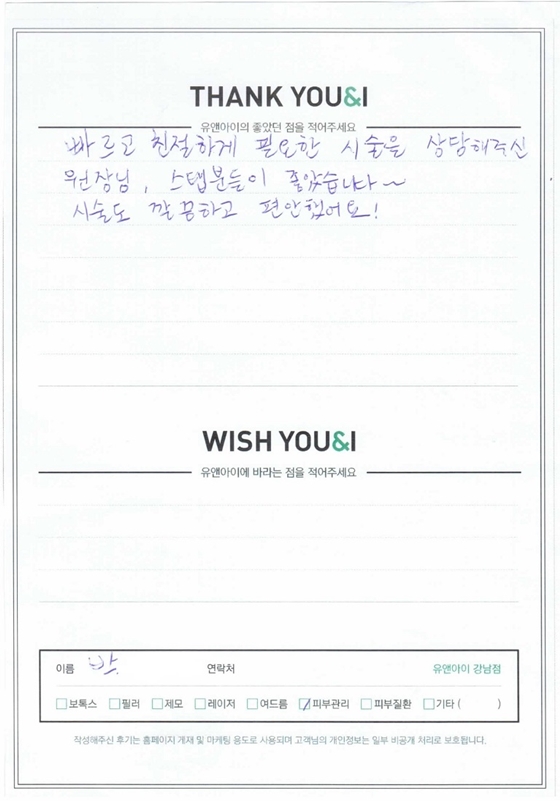 THANK YOU&I
유앤아이의 좋았던 점을 적어주세요
빠르고 친절하게 필요한 시술을 상담해주신
원장님, 스탭분들이 좋았습니다~
시술도 깔끔하고 편안했어요!
WISH YOU&I
유앤아이에 바라는 점을 적어주세요
이름 박 연락처 유앤아이 강남점
보톡스 필러 제모 레이저 여드름 피부관리 피부질환 기타 ( )
작성해주신 후기는 홈페이지 개재 및 마케팅 용도로 사용되며 고객님의 개인정보는 일부 비공개 처리로 보호됩니다.